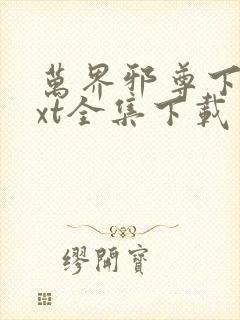 萬界邪尊下
xt全集下載
繆開寶